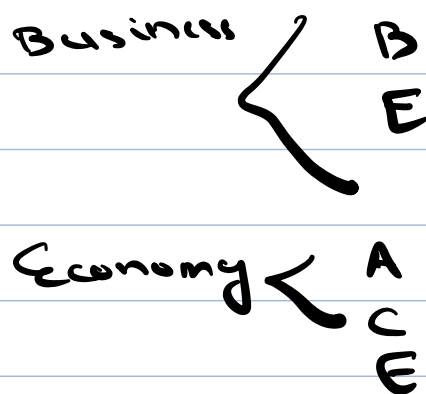 Business < B
E
Economy < A
C
E